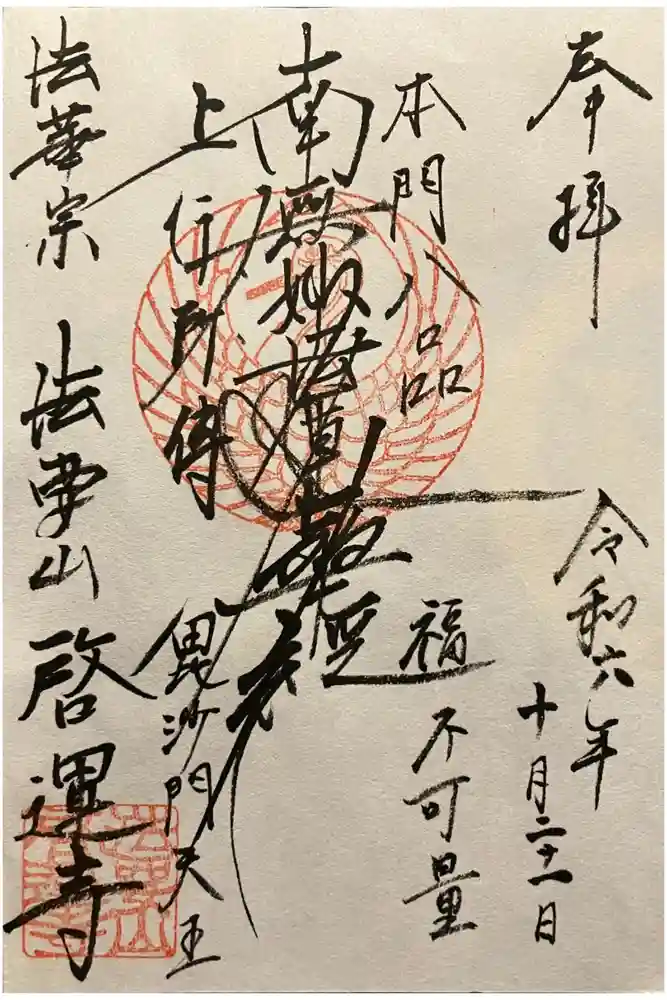 奉拝
令和六年
十月二十一日
本門八品
福不可量
南無妙法蓮華経
上行所傳
毘沙門天王
法華宗 法要山 啓運寺